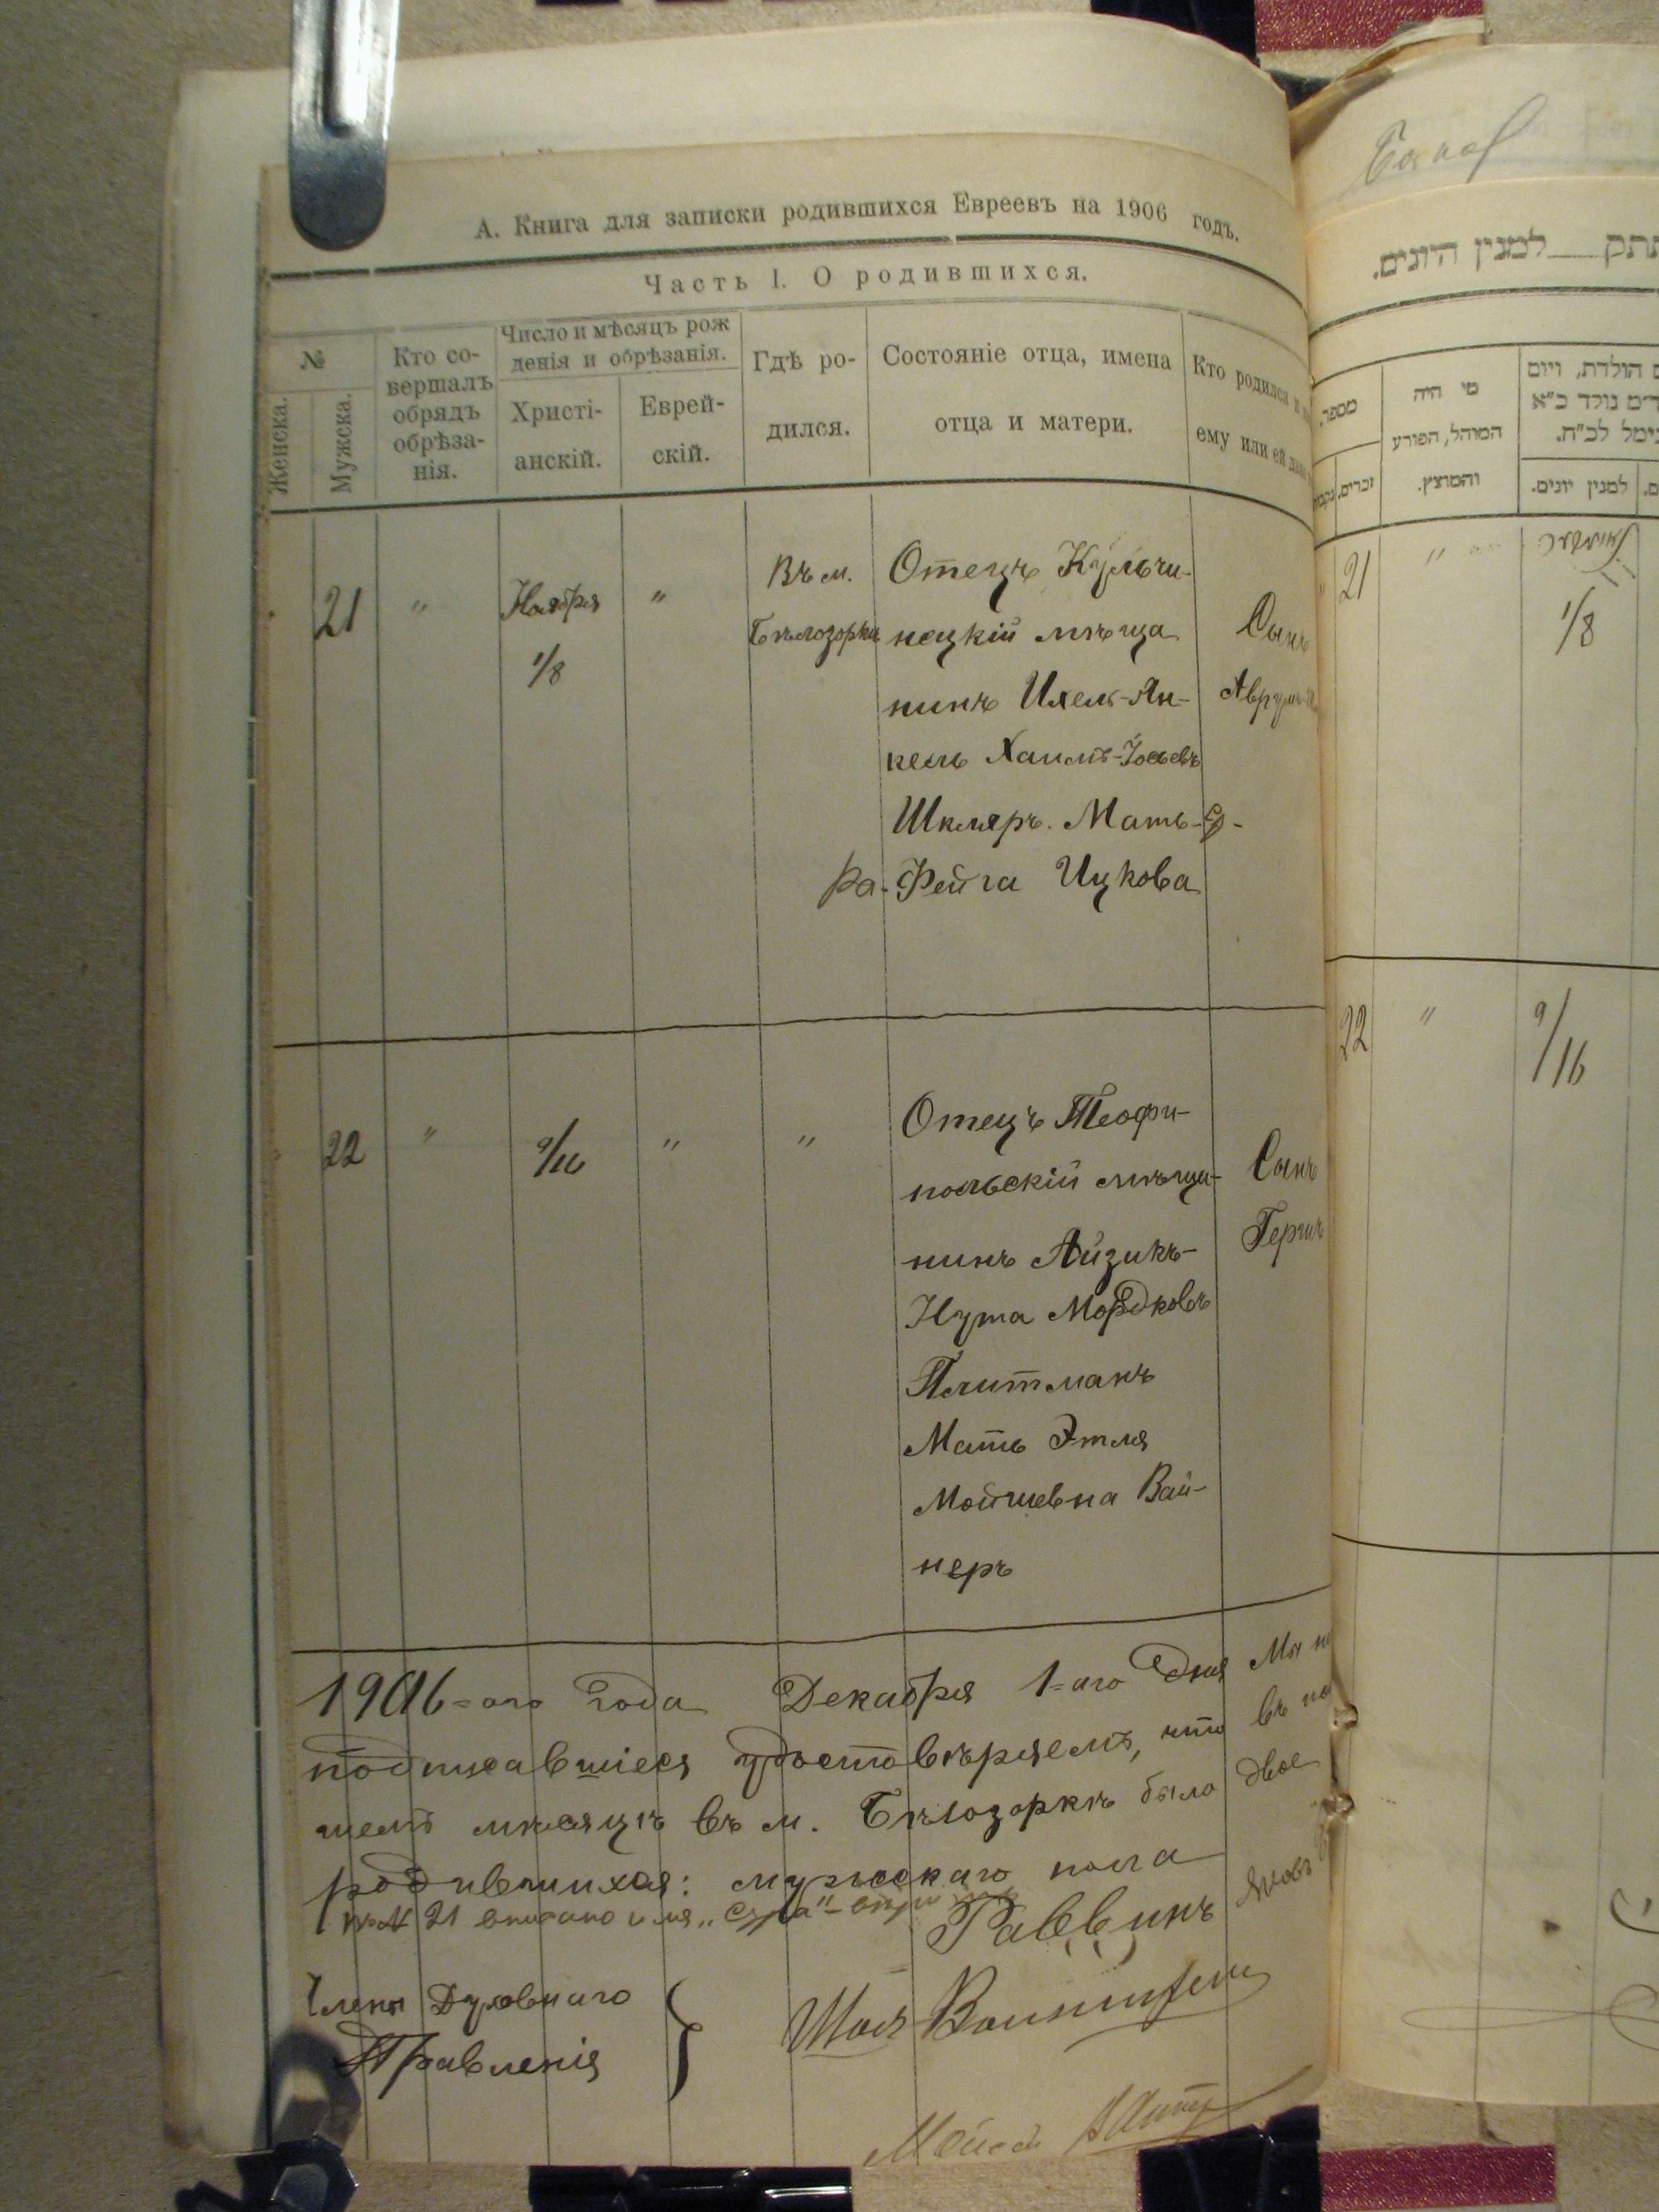 А. Книга для записки родившихся Евреевъ на 1906 годъ.
Часть I. О родившихся.
№
Женска.
Мужска.
Кто со-
вершалъ
обрядъ
обрѣза-
нія.
Число и мѣсяцъ рож
денія и обрѣзанія.
Христі-
анскій.
Еврей-
скій.
Гдѣ ро-
дился.
Состояніе отца, имена
отца и матери.
Кто родился и
ему или ей
21
"
Ноября
1/8
"
Въ м.
Бѣлозорки
Отецъ Кульчи-
нецкій мѣща
нинъ Ихель-Ян-
кель Хаимъ-Іосьевъ
Шкляръ. Мать-Ср-
ра-Фейга Ицкова
Сынъ
Аврумъ
22
"
9/16
"
"
Отецъ Теофи-
польскій мѣща-
нинъ Айзикъ-
Нута Мордковъ
Плитманъ
Мать Этля
Мойшевна Вай-
неръ
Сынъ
Гершъ
1906-ого года Декабря 1-аго дня Мы
подписавшіеся удостовѣряемъ, что въ
шемъ мѣсяцѣ въ м. Бѣлозоркѣ было двое
родившихся: мужскаго пола
въ № 21 вписано имя „Сура"
Раввинъ
Члены Духовнаго
Правленія
למנין היונים.
מספר.
זכרים.
מי היה
המוהל, הפורע
והמוצץ.
הולדת, ויום
נולד כ"א
לכ"ח.
למנין יונים.
21
"
1/8
22
"
9/16